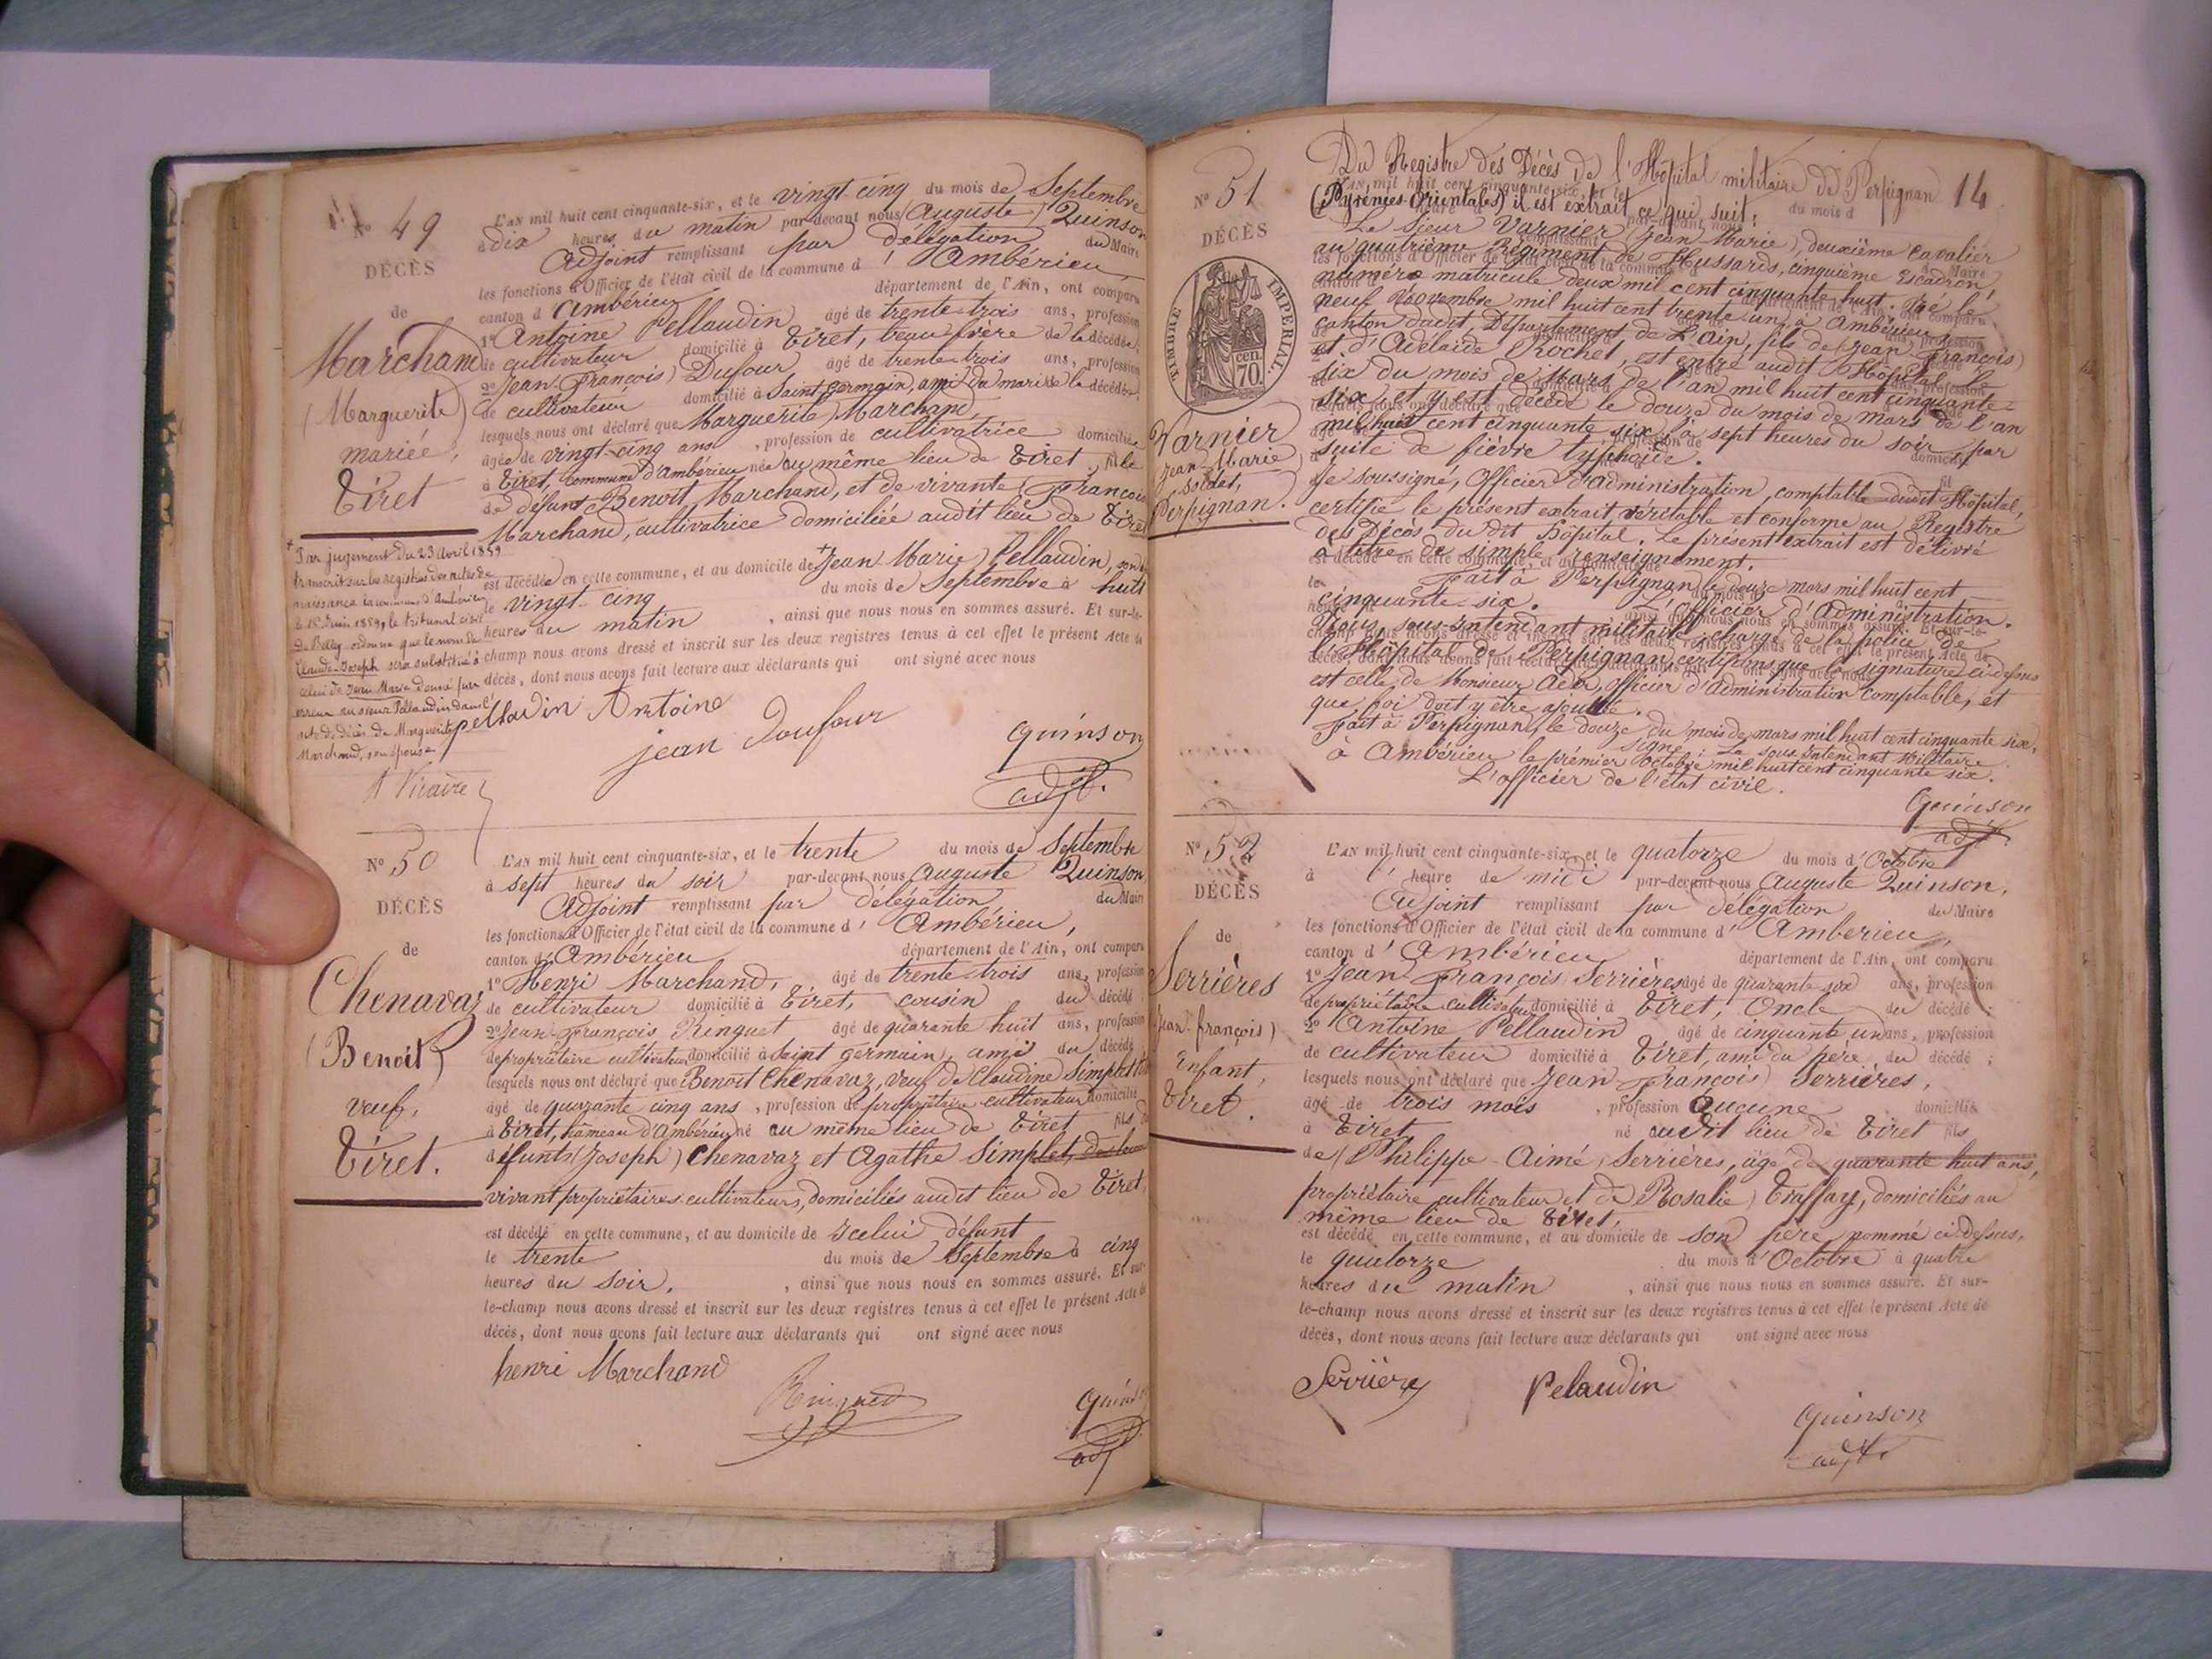 N° 49
DÉCÈS
de
Marchand
(Marguerite)
mariée,
Tiret
L'AN mil huit cent cinquante-six, et le vingt-cinq du mois de Septembre
à dix heures du matin par-devant nous Auguste Quinson
Adjoint remplissant par délégation du Maire
les fonctions d'Officier de l'état civil de la commune d'Ambérieu,
canton d'Ambérieu département de l'Ain, ont comparu
1° Antoine Pellaudin âgé de trente-trois ans, profession
de cultivateur domicilié à Tiret, beau frère de la décédée;
2° Jean-François Dufour âgé de trente-trois ans, profession
de cultivateur domicilié à Saint germain, ami du mari de la décédée;
lesquels nous ont déclaré que Marguerite Marchand,
âgée de vingt-cinq ans, profession de cultivatrice domiciliée
à Tiret, commune d'Ambérieu née au même lieu de Tiret, fille
de défunt Benoît Marchand, et de vivante Françoise
Marchand, cultivatrice domiciliée audit lieu de Tiret
est décédée en cette commune, et au domicile de + Jean Marie Pellaudin, son
le vingt-cinq du mois de Septembre à huit
heures du matin, ainsi que nous nous en sommes assuré. Et sur-le-
champ nous avons dressé et inscrit sur les deux registres tenus à cet effet le présent Acte de
décès, dont nous avons fait lecture aux déclarants qui ont signé avec nous
+ Par jugement du 23 avril 1859
transcrit sur les registres des actes de
naissance de la commune d'Ambérieu
le 1er Juin 1859, le tribunal civil
de Belley ordonne que le nom de
Claude-Joseph sera substitué à
celui de Jean Marie donné par
erreur au sieur Pellaudin dans l'
acte de décès de Marguerite
Marchand, son épouse
pellaudin Antoine
jean Doufour
Quinson
adjt.
N° 50
DÉCÈS
de
Chenavaz
(Benoît)
veuf,
Tiret.
L'AN mil huit cent cinquante-six, et le trente du mois de Septembre
à sept heures du soir par-devant nous Auguste Quinson
Adjoint remplissant par délégation du Maire
les fonctions d'Officier de l'état civil de la commune d'Ambérieu,
canton d'Ambérieu département de l'Ain, ont comparu
1° Henri Marchand, âgé de trente-trois ans, profession
de cultivateur domicilié à Tiret, cousin du décédé;
2° Jean-François Ringuet âgé de quarante huit ans, profession
de propriétaire cultivateur domicilié à Saint germain, ami du décédé;
lesquels nous ont déclaré que Benoît Chenavaz, veuf de Claudine Simplet
âgé de quarante cinq ans, profession de propriétaire cultivateur domicilié
à Tiret, hameau d'Ambérieu né au même lieu de Tiret fils de
défunts Joseph Chenavaz et Agathe Simplet, de leur
vivant propriétaires cultivateurs, domiciliés audit lieu de Tiret,
est décédé en cette commune, et au domicile de Icelui défunt
le trente du mois de Septembre à cinq
heures du soir, ainsi que nous nous en sommes assuré. Et sur-
le-champ nous avons dressé et inscrit sur les deux registres tenus à cet effet le présent Acte de
décès, dont nous avons fait lecture aux déclarants qui ont signé avec nous
henri Marchand
Quinson
adj
N° 51
DÉCÈS
TIMBRE IMPERIAL
70 cen.
Varnier
Jean Marie
soldat,
Perpignan.
Du Registre des Décès de l'Hôpital militaire de Perpignan 14
(Pyrénées-Orientales) il est extrait ce qui suit:
Le Sieur Varnier (Jean Marie), deuxième cavalier
au quatrième Régiment de Hussards, cinquième Escadron,
numéro matricule deux mil cent cinquante huit. Né le
neuf Novembre mil huit cent trente un, à Ambérieu,
canton dudit, Département de L'Ain, fils de Jean François
et d'Adélaïde Rochet, est entré audit Hôpital le
six du mois de Mars de l'an mil huit cent cinquante-
six, et y est décédé le douze du mois de mars de l'an
mil huit cent cinquante six, à sept heures du soir, par
suite de fièvre typhoïde.
Je soussigné, Officier d'administration, comptable dudit Hôpital,
certifie le présent extrait véritable et conforme au Registre
des Décès du dit Hôpital. Le présent extrait est délivré
à titre de simple renseignement.
Fait à Perpignan le douze mars mil huit cent
cinquante-six. L'officier d'administration.
Nous, sous-intendant militaire chargé de la police de
l'Hôpital de Perpignan, certifions que la signature ci-dessus
est celle de Monsieur officier d'administration comptable, et
que foi doit y être ajoutée.
Fait à Perpignan, le douze du mois de mars mil huit cent cinquante six,
signé: Le sous-intendant Militaire.
a Ambérieu le prémier Octobre mil huit cent cinquante six.
L'officier de l'état civil.
Quinson
adjt
N° 52
DÉCÈS
de
Serrières
(Jean-françois)
Enfant,
Tiret.
L'AN mil huit cent cinquante-six, et le quatorze du mois d'Octobre
à l' heure de midi par-devant nous Auguste Quinson,
Adjoint remplissant par délégation du Maire
les fonctions d'Officier de l'état civil de la commune d'Ambérieu,
canton d'Ambérieu département de l'Ain, ont comparu
1° Jean-François Serrières âgé de quarante six ans, profession
de propriétaire cultivateur domicilié à Tiret, Oncle du décédé;
2° Antoine Pellaudin âgé de cinquante un ans, profession
de cultivateur domicilié à Tiret, ami du père du décédé;
lesquels nous ont déclaré que Jean-François Serrières,
âgé de trois mois, profession Aucune domicilié
à Tiret né audit lieu de Tiret fils
de Philippe-Aimé Serrières, âgé de quarante huit ans,
propriétaire cultivateur et de Rosalie Traffay, domiciliés au
même lieu de Tiret,
est décédé en cette commune, et au domicile de son père nommé ci-dessus,
le quatorze du mois d'Octobre à quatre
heures du matin, ainsi que nous nous en sommes assuré. Et sur-
le-champ nous avons dressé et inscrit sur les deux registres tenus à cet effet le présent Acte de
décès, dont nous avons fait lecture aux déclarants qui ont signé avec nous
Serrières
Pelaudin
Quinson
adjt.